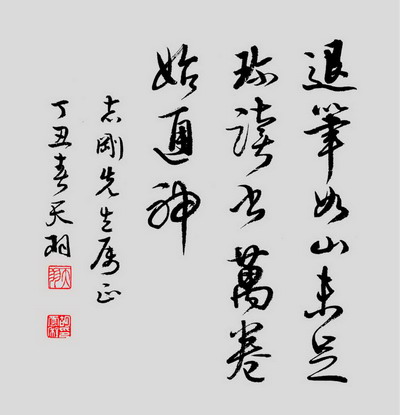 退筆如山未足
珍讀書萬卷
始通神
志剛先生屬正
丁丑春天羽